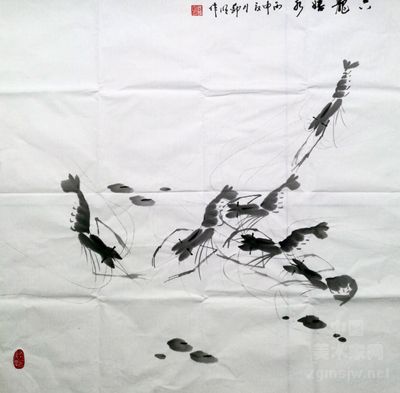 六龍嬉水 丙申秋月 作
中国
美术家网
zgmsjw.net